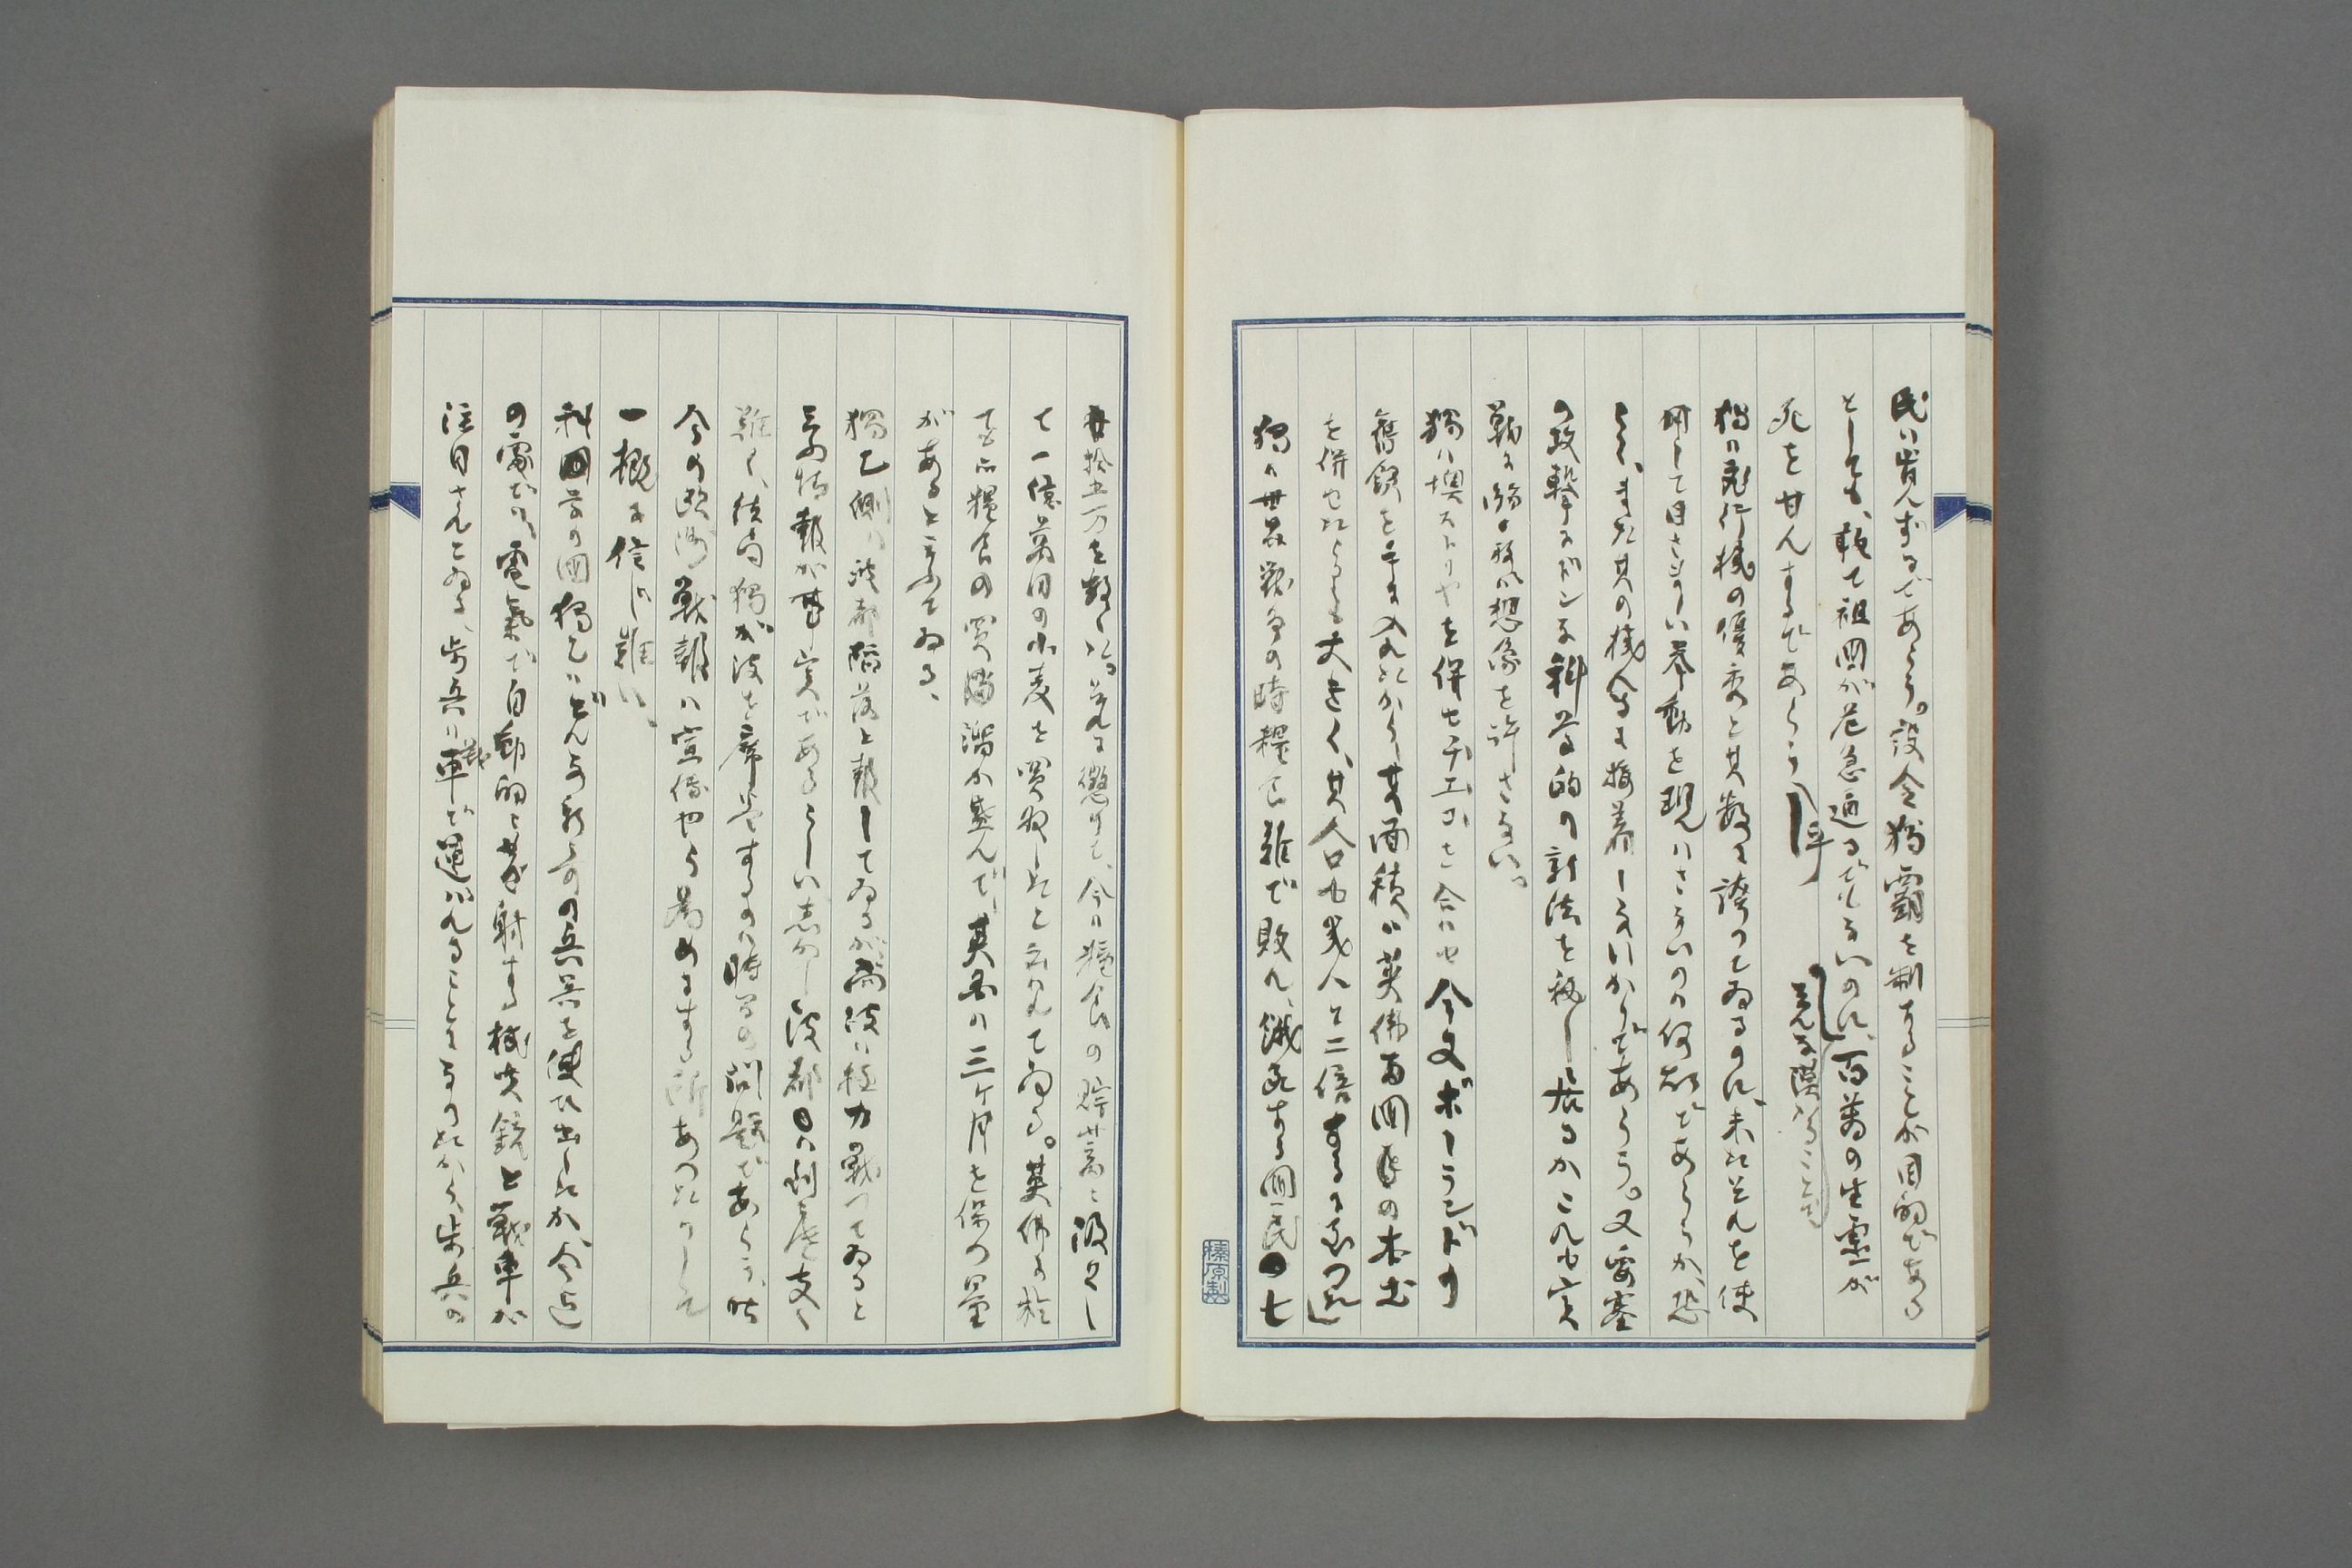 民は肯んずるであらう。設令独覇を制することが目的である
としても、敢て祖国が危急迫るでもないのに、百萬の生霊が
死を甘んするであらう乎
独は飛行機の優秀と其数を誇つてゐるのに、未だそんを使
用して目さましい挙動を現はさないのは何故であらうか、恐
らく、まだ其の機会に撞着しないからであらう。又要塞
の攻撃にドンな科学的の新法を秘し居るかこれも実
戦に臨まねば想像を許さない。
独は墺太りやを併せチエコを合はせ今又ポーランドの
舊領を手に入れたから其面積は英佛両国の本土
を併せたよりも大きく、其人口も幾んど二倍するに至つた
独は世界戦争の時糧食難で敗れ、餓死する国民七
拾五万を数へた。それに懲りて、今は糧食の貯蓄に汲々し
て一億萬円の小麦を買収したと云はれてゐる。英佛に於
ても亦糧食の買溜が盛んで、英国の三ヶ月を保つ量
があると云ふてゐる、
独乙側は波都陥落と報してゐるが、波は極力戦つてゐると
云ふ情報が真実であるらしい、しかし波都は到底支へ
難く、結局独が波を席巻するのは時日の問題であらう、昨
今の欧洲戦報は宣伝やら為めにする所あつたりして
一概に信じ難い、
科国学の国独乙はどんな新らの兵器を使ひ出したか、今迄
の處では、電氣で自動的に発射する機関銃と戦車が
注目されてゐる、歩兵は戦車で運ばれることになつたから、歩兵の
榛原製